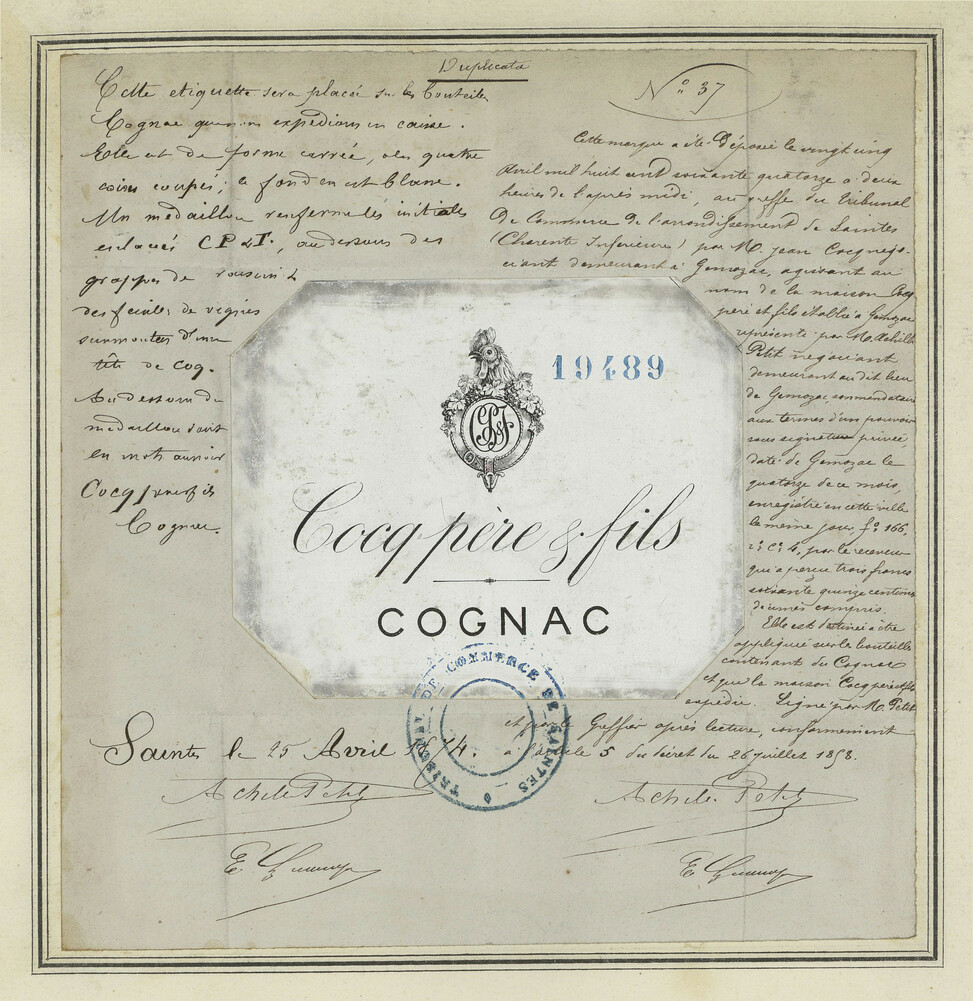 Duplicata
N° 37
Cette etiquette sera placée sur les bouteilles
Cognac que nous expédions en caisse.
Elle est de forme carrée, a les quatre
coins coupés; le fond en est blanc.
Un médaillon renferme les initiales
enlacées CP&F., au dessus des
grappes de raisins &
des feuilles de vignes
surmontées d'une
tête de coq.
Au dessous du
médaillon sont
en mots au noir
Cocq père & fils
Cognac.
Cette marque a été Déposée le vingt cinq
Avril mil huit cent soixante quatorze a deux
heures de l'après midi, au greffe du tribunal
De Commerce De l'arrondissement de Saintes
(Charente Inférieure) par M. Jean Cocq négo-
ciant demeurant à Gemozac, agissant au
nom de la maison Cocq
père et fils établie à Gemozac
représenté par M. Achille
Petit négociant
demeurant au dit lieu
de Gemozac, son mandataire
aux termes d'un pouvoir
sous signature privée
daté de Gemozac le
quatorze de ce mois,
enregistré en cette ville
le même jour, f.° 166,
r.° c.° 4, par le receveur
qui a perçu trois francs
soixante quinze centimes
décimes compris.
Elle est destinée à être
appliquée sur les bouteilles
contenant du Cognac
et que la maison Cocq père et fils
expédie. Signé par M. Petit
et par le Greffier après lecture, conformement
à l'article 5 du décret du 26 juillet 1858.
19489
CP&F
Cocq père & fils
COGNAC
TRIBUNAL DE COMMERCE DE SAINTES
Saintes le 25 Avril 1874.
Achile Petit
Achile Petit